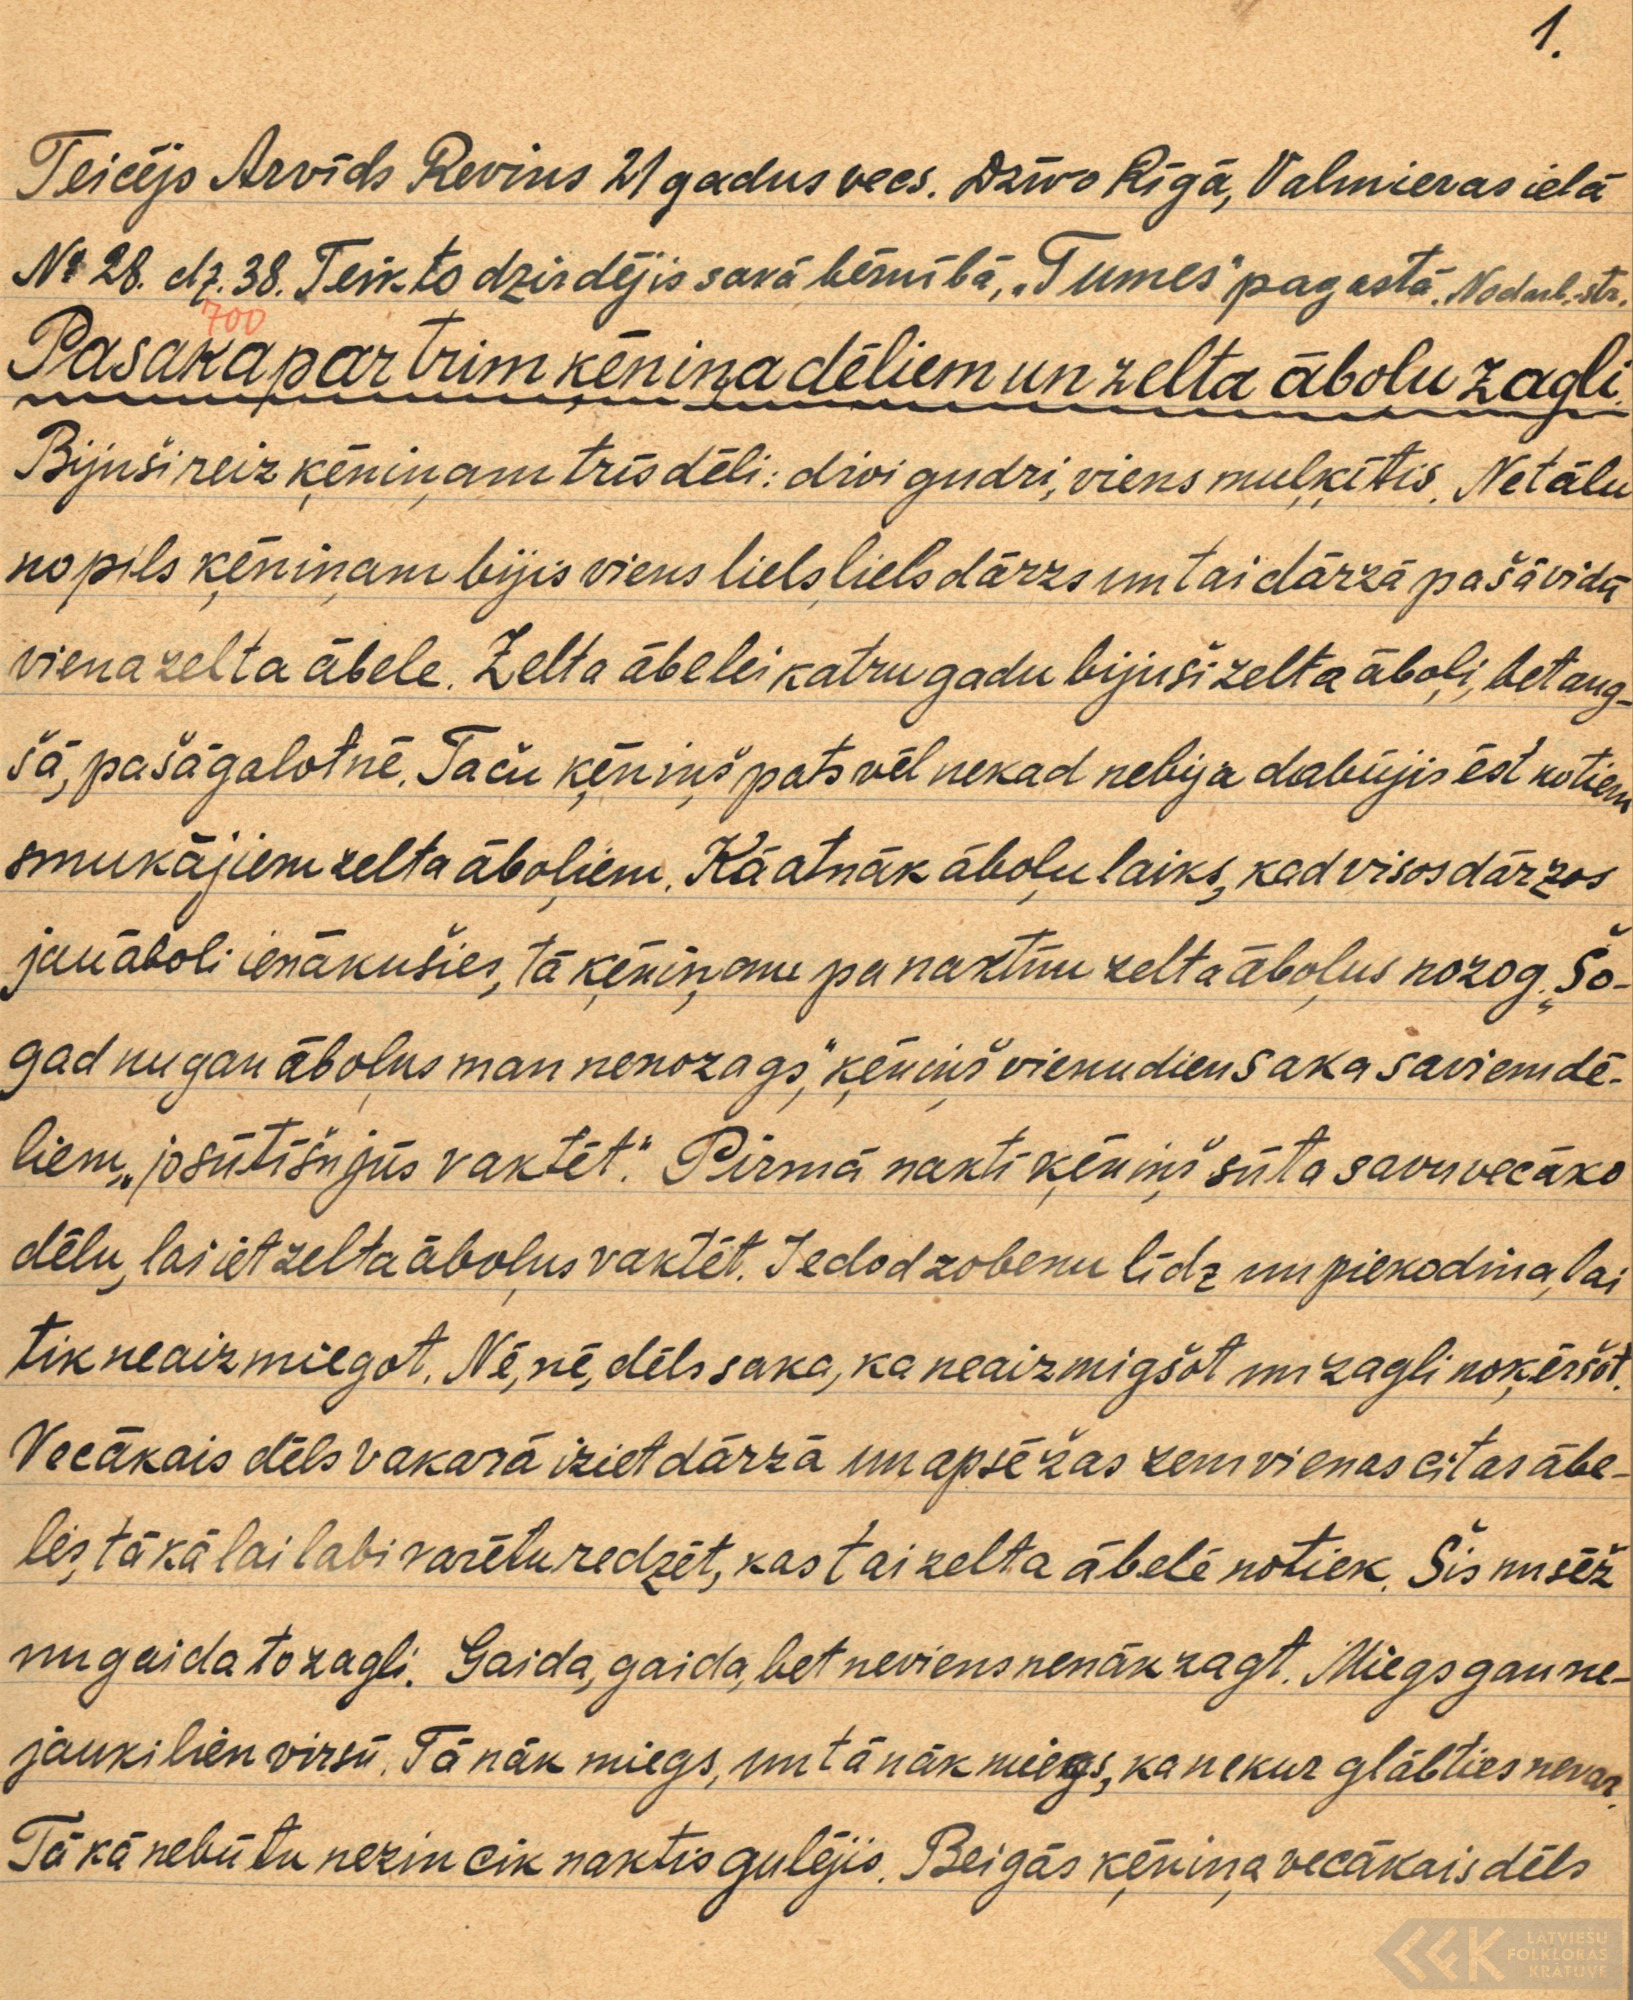 1.
Teicējs Arvīds Revins 21 gadus vecs. Dzīvo Rīgā, Valmieras ielā
№ 28. dz. 38. Teikto dzirdējis savā bērnībā, „Tumes" pagastā. Nodarb. str.
700
Pasaka par trim ķēniņa dēliem un zelta ābolu zagli.
Bijuši reiz ķēniņam trīs dēli: divi gudri, viens muļķītis. Netālu
no pils ķēniņam bijis viens liels, liels dārzs un tai dārzā pašā vidū
viena zelta ābele. Zelta ābelei katru gadu bijuši zelta āboļi, bet aug-
šā, pašā galotnē. Taču ķēniņš pats vēl nekad nebija dabūjis ēst no tiem
smukājiem zelta āboļiem. Kā atnāk āboļu laiks, kad visos dārzos
jau āboli ienākušies, tā ķēniņam pa naktīm zelta āboļus nozog. „Šo-
gad nu gan āboļus man nenozags," ķēniņš vienu dien saka saviem dē-
liem, „jo sūtīšu jūs vaktēt." Pirmā naktī ķēniņš sūta savu vecāko
dēlu, lai iet zelta āboļus vaktēt. Iedod zobenu līdz un piekodina, lai
tik neaizmiegot. Nē, nē, dēls saka, ka neaizmigšot un zagli noķēršot.
Vecākais dēls vakarā iziet dārzā un apsēžas zem vienas citas ābe-
les, tā kā lai labi varētu redzēt, kas tai zelta ābelē notiek. Šis nu sēž
un gaida to zagli. Gaida, gaida, bet neviens nenāk zagt. Miegs gau ne-
jauki lien virsū. Tā nāk miegs, un tā nāk miegs, ka nekur glābties nevar.
Tā kā nebūtu nezin cik naktis gulējis. Beigās ķēniņa vecākais dēls
LATVIEŠU
FOLKLORAS
KRĀTUVE